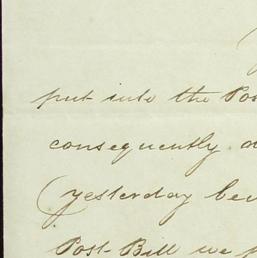 put into the Pos
consequently d
(yesterday bei
Post-Bill we p